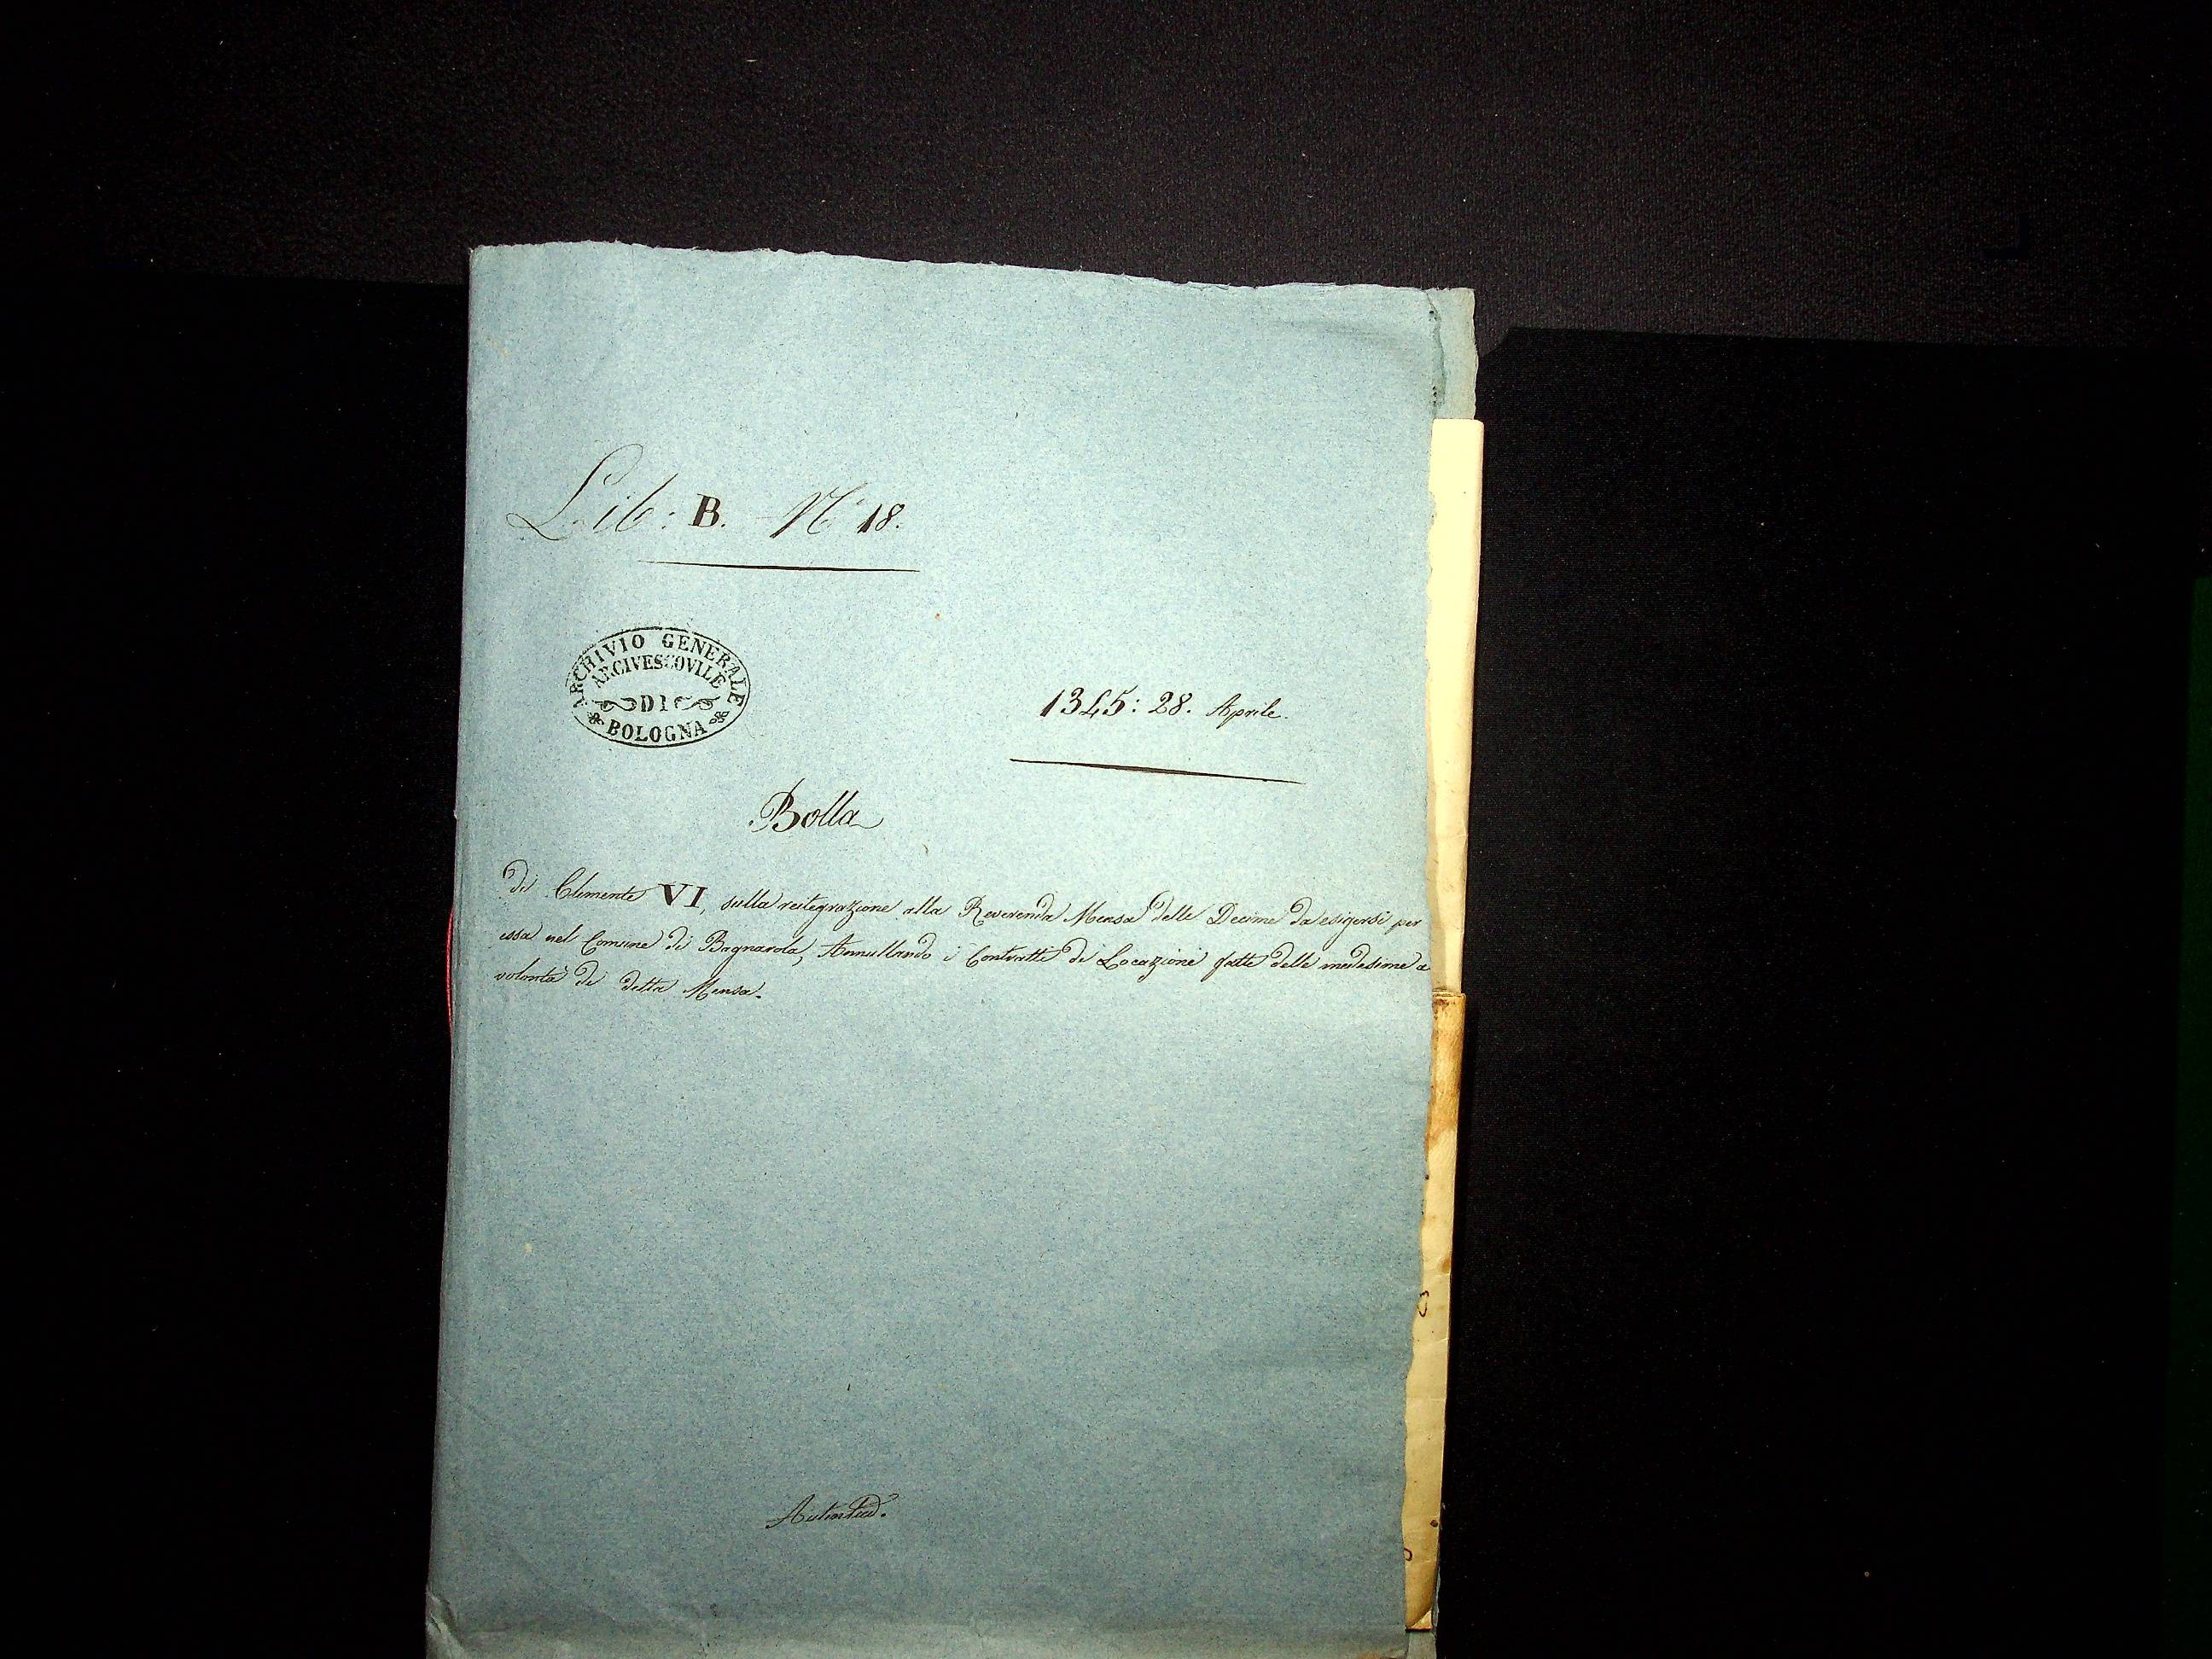 Lib: B. N.° 18.
ARCHIVIO GENERALE
ARCIVESCOVILE
DI
BOLOGNA
1345: 28. Aprile.
Bolla
di Clemente VI, sulla reitegrazione alla Reverenda Mensa delle Decime da esigersi per
essa nel Comune di Bagnarola, Annullando i Contratti di Locazioni fatte delle medesime a
volontà di detta Mensa.
Autentica.